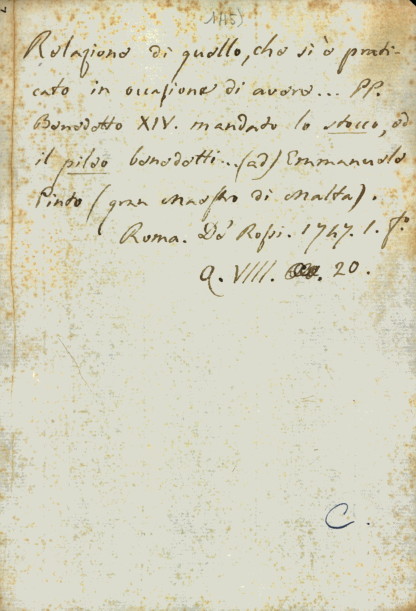 Relazione di quello, che si è prati-
cato in occasione di avere... PP.
Benedetto XIV. mandato lo stocco, ed
il pileo benedetti...(ad) Emmanuele
Pinto (gran Maestro di Malta).
Roma. De' Rossi. 1747. 1. f.
Q. VIII. 20.
C.